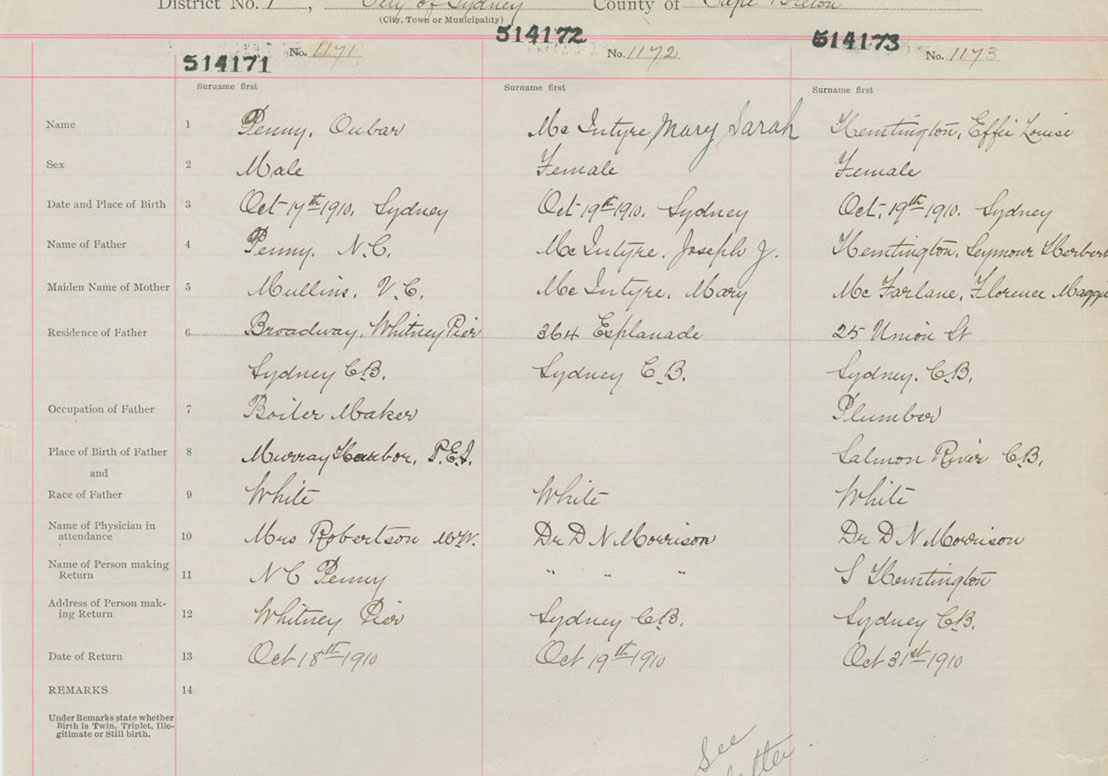 District No. 7, City of Sydney County of Cape Breton
(City, Town or Municipality)
514171 No. 1171 514172 No. 1172 514173 No. 1173
Surname first Surname first Surname first
Name 1 Penny, Oubar Mc Intyre Mary Sarah Huntington, Effie Louise
Sex 2 Male Female Female
Date and Place of Birth 3 Oct 17th 1910, Sydney Oct 19th 1910, Sydney Oct, 19th 1910, Sydney
Name of Father 4 Penny, N.C. Mc Intyre, Joseph J. Huntington, Seymour Herbert
Maiden Name of Mother 5 Mullins, V.C. Mc Intyre, Mary Mc Farlane, Florence Maggie
Residence of Father 6 Broadway, Whitney Pier 364 Esplanade 25 Union St
Sydney C.B. Sydney C.B. Sydney, C.B.
Occupation of Father 7 Boiler Maker Plumber
Place of Birth of Father 8 Murray Harbor, P.E.I. Salmon River C.B.
and
Race of Father 9 White White White
Name of Physician in
attendance 10 Mrs Robertson M.W. Dr D N Morrison Dr D N Morrison
Name of Person making
Return 11 N C Penny " " " S Huntington
Address of Person mak-
ing Return 12 Whitney Pier Sydney C.B. Sydney C.B.
Date of Return 13 Oct 18th 1910 Oct 19th 1910 Oct 31st 1910
REMARKS 14
Under Remarks state whether
Birth is Twin, Triplet, Ille-
gitimate or Still birth.
See
letter